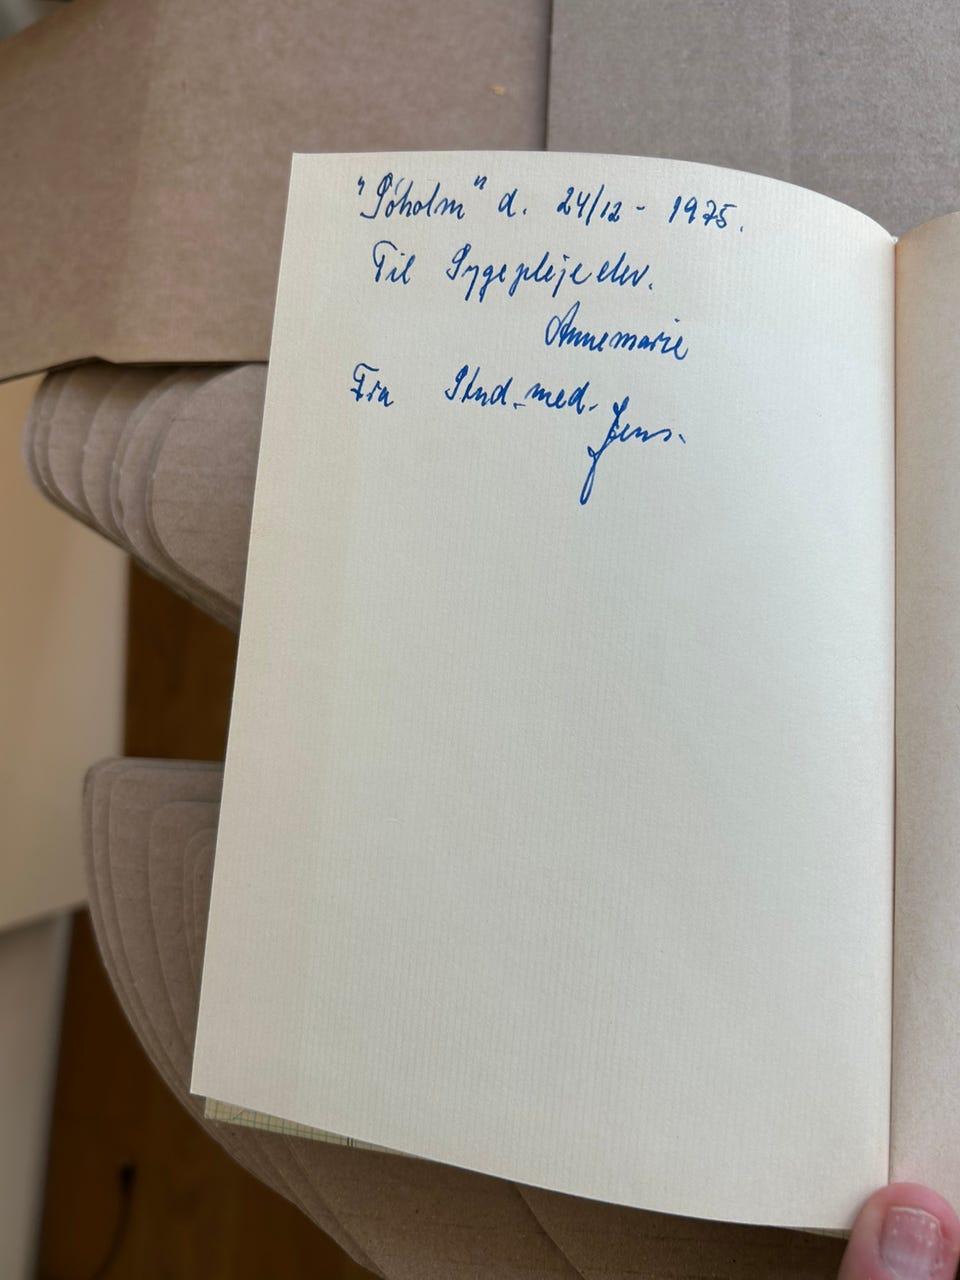 "Söholm" d. 24/12 - 1975.
Til Sygeplejeelev.
Annemarie
Fra Stud. med.
Jens.